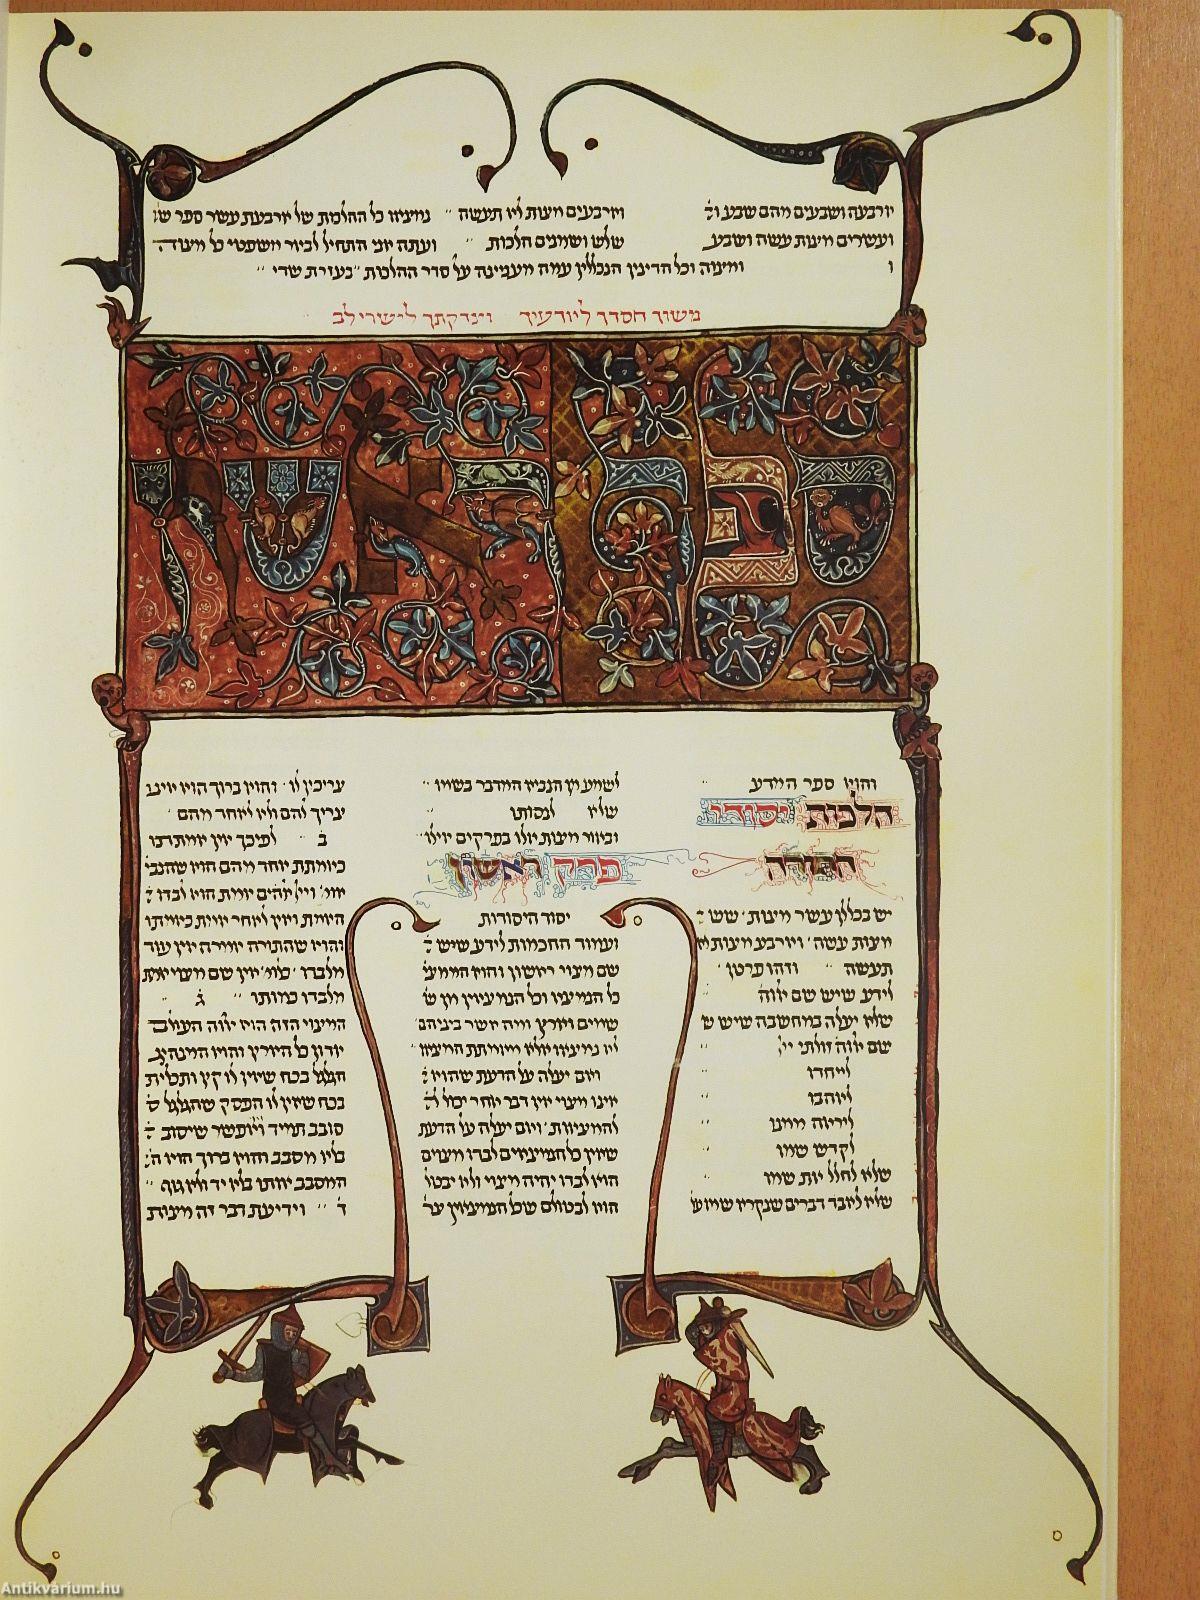 ארבעה ושבעים מהם שבע וארבעים מצות לא תעשה נמצאו כל ההלכות של ארבעת עשר ספר
ועשרים מצות עשה ושבע שלש ושמנים הלכות ועתה אני אתחיל לבאר משפטי כל מצוה
ו ומצוה וכל הדינין הנכללין עמה מענינה על סדר ההלכות בעזרת שדי
משוך חסדך ליודעיך וצדקתך לישרי לב
ספר ראשון
והוא ספר המדע
הלכות יסודי
התורה
יש בכללן עשר מצות שש
מצות עשה וארבע מצות לא
תעשה וזהו פרטן
לידע שיש שם אלוה
שלא יעלה במחשבה שיש ש
שם אלוה זולתי יי
לייחדו
לאהבו
ליראה ממנו
לקדש שמו
שלא לחלל את שמו
שלא לאבד דברים שנקרא שמו על
לשמע מן הנביא המדבר בשמו
שלא לנסותו
וביאור מצות אלו בפרקים אילו
פרק ראשון
יסוד היסודות
ועמוד החכמות לידע שיש
שם מצוי ראשון והוא הממצי
כל הנמצא וכל הנמצאין מן ש
שמים וארץ ומה אשר ביניהם
לא נמצאו אלא מאמתת המצאו
ואם יעלה על הדעת שהוא
אינו מצוי אין דבר אחר יכול ל
להמצאות ואם יעלה על הדעת
שאין כל הנמצאים לבדו מצוים
הוא לבדו יהיה מצוי ולא יבטל
הוא לבטולם שכל הנמצאין צר
צריכין לו והוא ברוך הוא אינו
צריך להם ולא לאחד מהם
ב לפיכך אין אמתתו
כאמתת אחד מהם הוא שהנבי
אומ׳ ויי אלהים אמת הוא לבדו
האמת ואין לאחר אמת כאמתו
והוא שהתורה אומרה אין עוד
מלבדו כלומ׳ אין שם מצוי אמת
מלבדו כמותו ג
המצוי הזה הוא אלוה העולם
אדון כל הארץ והוא המנהג
הגלגל בכח שאין לו קץ ותכלית
בכח שאין לו הפסק שהגלגל ס
סובב תמיד ואי אפשר שיסוב
בלא מסבב והוא ברוך הוא ה
המסבב אותו בלא יד ולא גוף
ד וידיעת דבר זה מצות
Antikvárium.hu